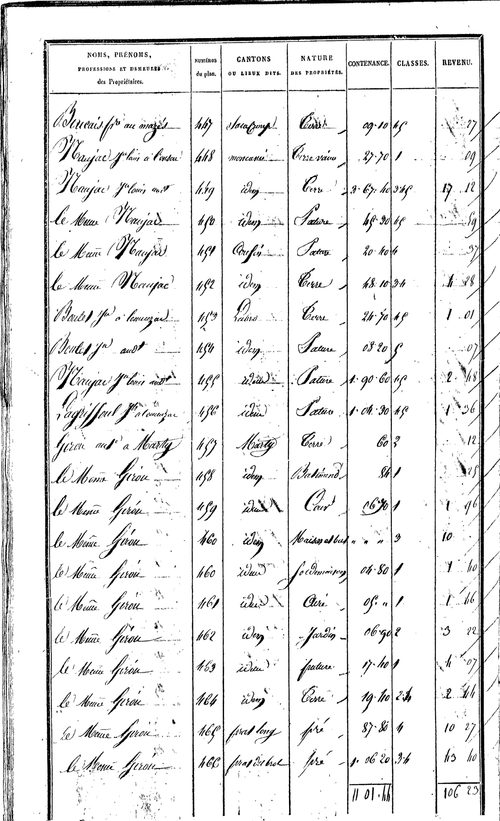 NOMS, PRÉNOMS, PROFESSIONS ET DEMEURES des Propriétaires. NUMÉROS du plan. CANTONS OU LIEUX DITS. NATURE DES PROPRIÉTÉS. CONTENANCE. CLASSES. REVENU.
447 Terre 09 10 45 27
Naujac Jn louis à 448 Terre vaine 27 70 1 09
Naujac Jn louis audt 449 idem Terre 3 67 40 345 17 12
le Meme Naujac 450 idem Pature 45 30 45 59
le Meme Naujac 451 Pature 20 40 4 37
le Meme Naujac 452 idem Terre 48 10 34 4 28
Boulet Jn à 453 Terre 24 70 45 1 01
Boulet Jn audt 454 idem Pature 03 20 5 07
Naujac Jn louis audt 455 idem Pature 1 90 60 45 2 48
456 idem Pature 1 04 30 45 1 36
Girou ant à Marty 457 Marty Terre 60 2 12
le Meme Girou 458 idem Batiment 84 1 25
le Meme Girou 459 idem Cour 06 70 1 1 96
le Meme Girou 460 idem Maison et 3 10
le Meme Girou 460 idem 04 80 1 1 40
le Meme Girou 461 idem 05 „ 1 1 46
le Meme Girou 462 idem Jardin 06 90 2 3 22
le Meme Girou 463 idem pature 17 40 1 4 07
le Meme Girou 464 idem Terre 19 40 24 2 44
le Meme Girou 465 prat long pré 87 80 4 10 27
le Meme Girou 466 pré 1 06 20 34 43 40
11 01 44 106 23